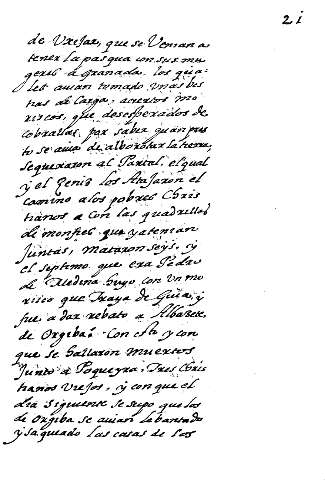 21
de Vxijar, que se Venian a
tener la pasqua con sus mu
geres a Granada. los qua-
les auian tomado Vnas bes
tias de Carga, a ciertos mo
riscos, que desesperados de
cobrallas, por saber quan pres
to se auia de alborotar la tierra,
se quexaron al Partal, el qual
y el Zenis los Atajaron el
camino a los pobres Chris
tianos a con las quadrillas
de monfies que ya tenian
Juntas, mataron seys, y
el septimo que era Pedro
de Medina huyo con Vn mo
risco que Traya de Guia, y
fue a dar rebato a Albacete
de Orgiba. Con esto y con
que se hallaron muertos
Junto a Poqueyra, Tres Chris
tianos Viejos, y con que el
dia siguiente se supo que los
de Orgiba se auian lebantado
y saqueado las casas de los